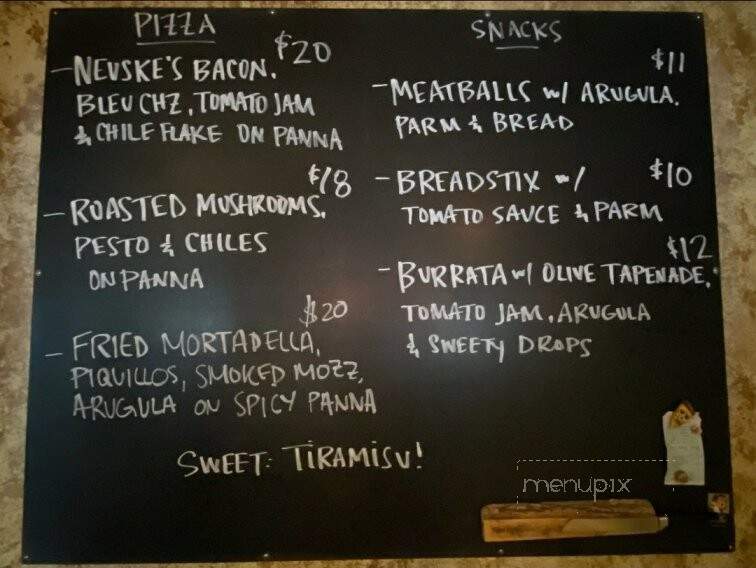 PIZZA
$20
- NEUSKE'S BACON,
BLEU CHZ, TOMATO JAM
& CHILE FLAKE ON PANNA
$18
- ROASTED MUSHROOMS,
PESTO & CHILES
ON PANNA
$20
- FRIED MORTADELLA,
PIQUILLOS, SMOKED MOZZ,
ARUGULA ON SPICY PANNA
SNACKS
$11
- MEATBALLS w/ ARUGULA,
PARM & BREAD
- BREADSTIX w/ $10
TOMATO SAUCE & PARM
$12
- BURRATA w/ OLIVE TAPENADE,
TOMATO JAM, ARUGULA
& SWEETY DROPS
SWEET: TIRAMISU!
menupix